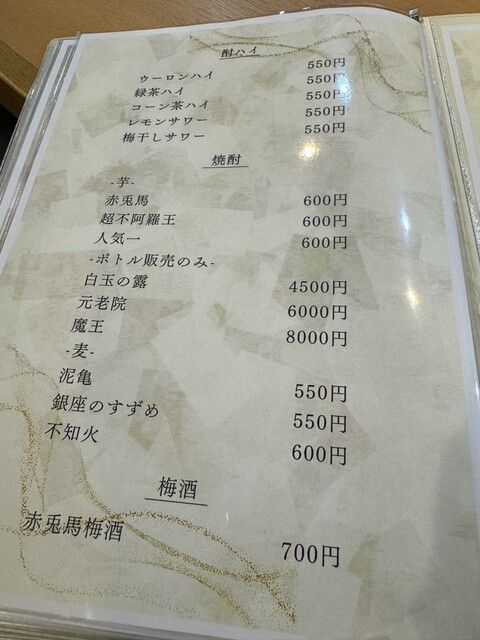 酎ハイ
ウーロンハイ 550円
緑茶ハイ 550円
コーン茶ハイ 550円
レモンサワー 550円
梅干しサワー 550円
焼酎
-芋-
赤兎馬 600円
超不阿羅王 600円
人気一 600円
-ボトル販売のみ-
白玉の露 4500円
元老院 6000円
魔王 8000円
-麦-
泥亀 550円
銀座のすずめ 550円
不知火 600円
梅酒
赤兎馬梅酒 700円